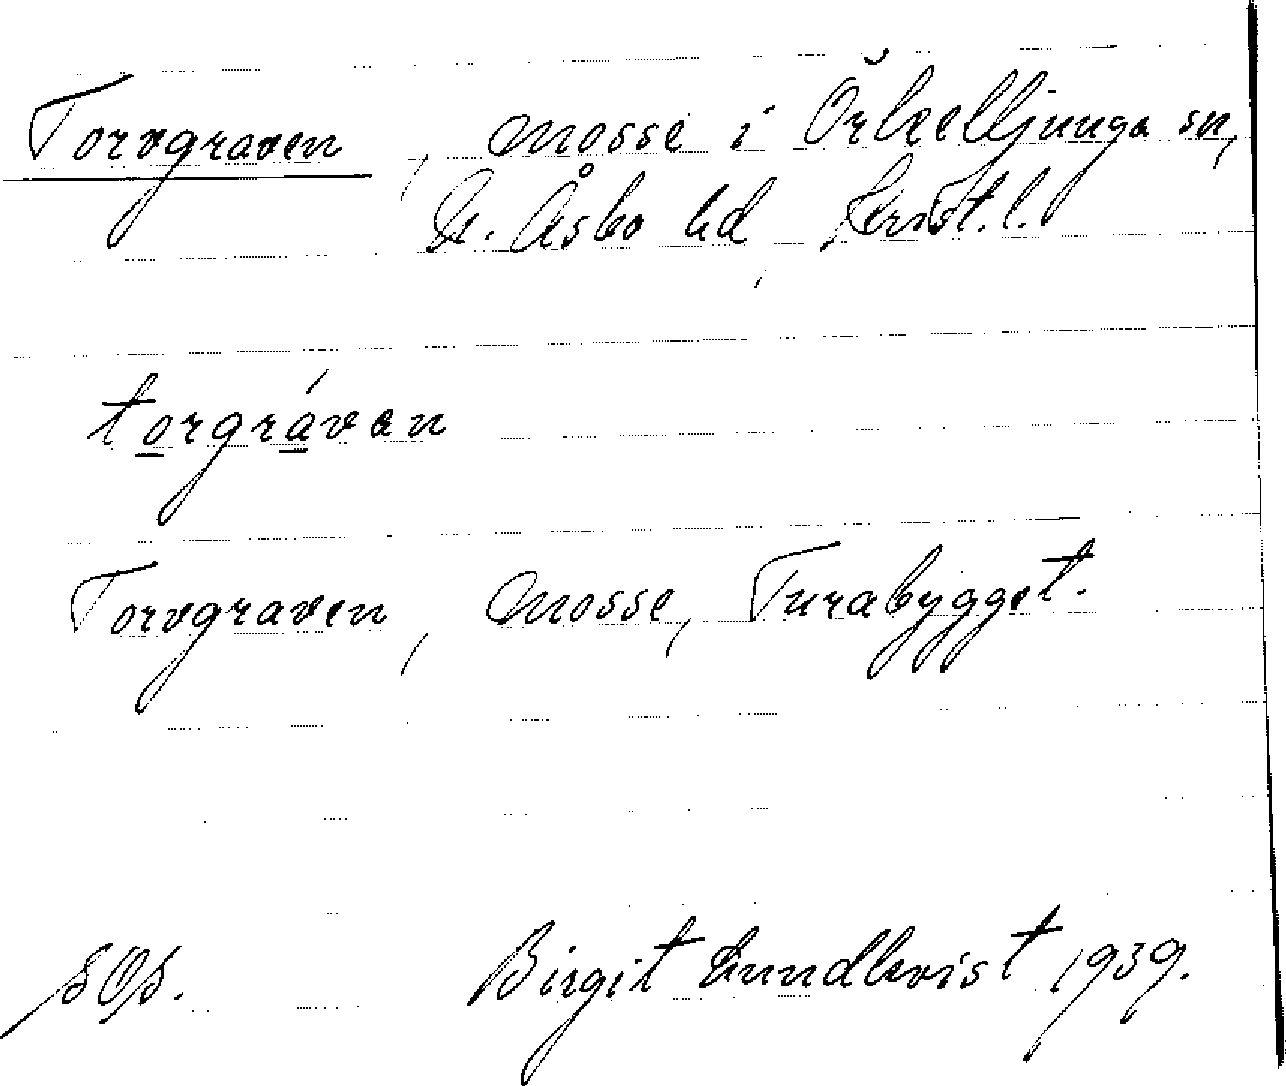 Torvgraven, mosse i Örkelljunga sn,
N. Åsbo hd, Krist.l.
torgráven
Torvgraven, mosse, Turabygget.
SOS. Birgit Lundkvist 1939.